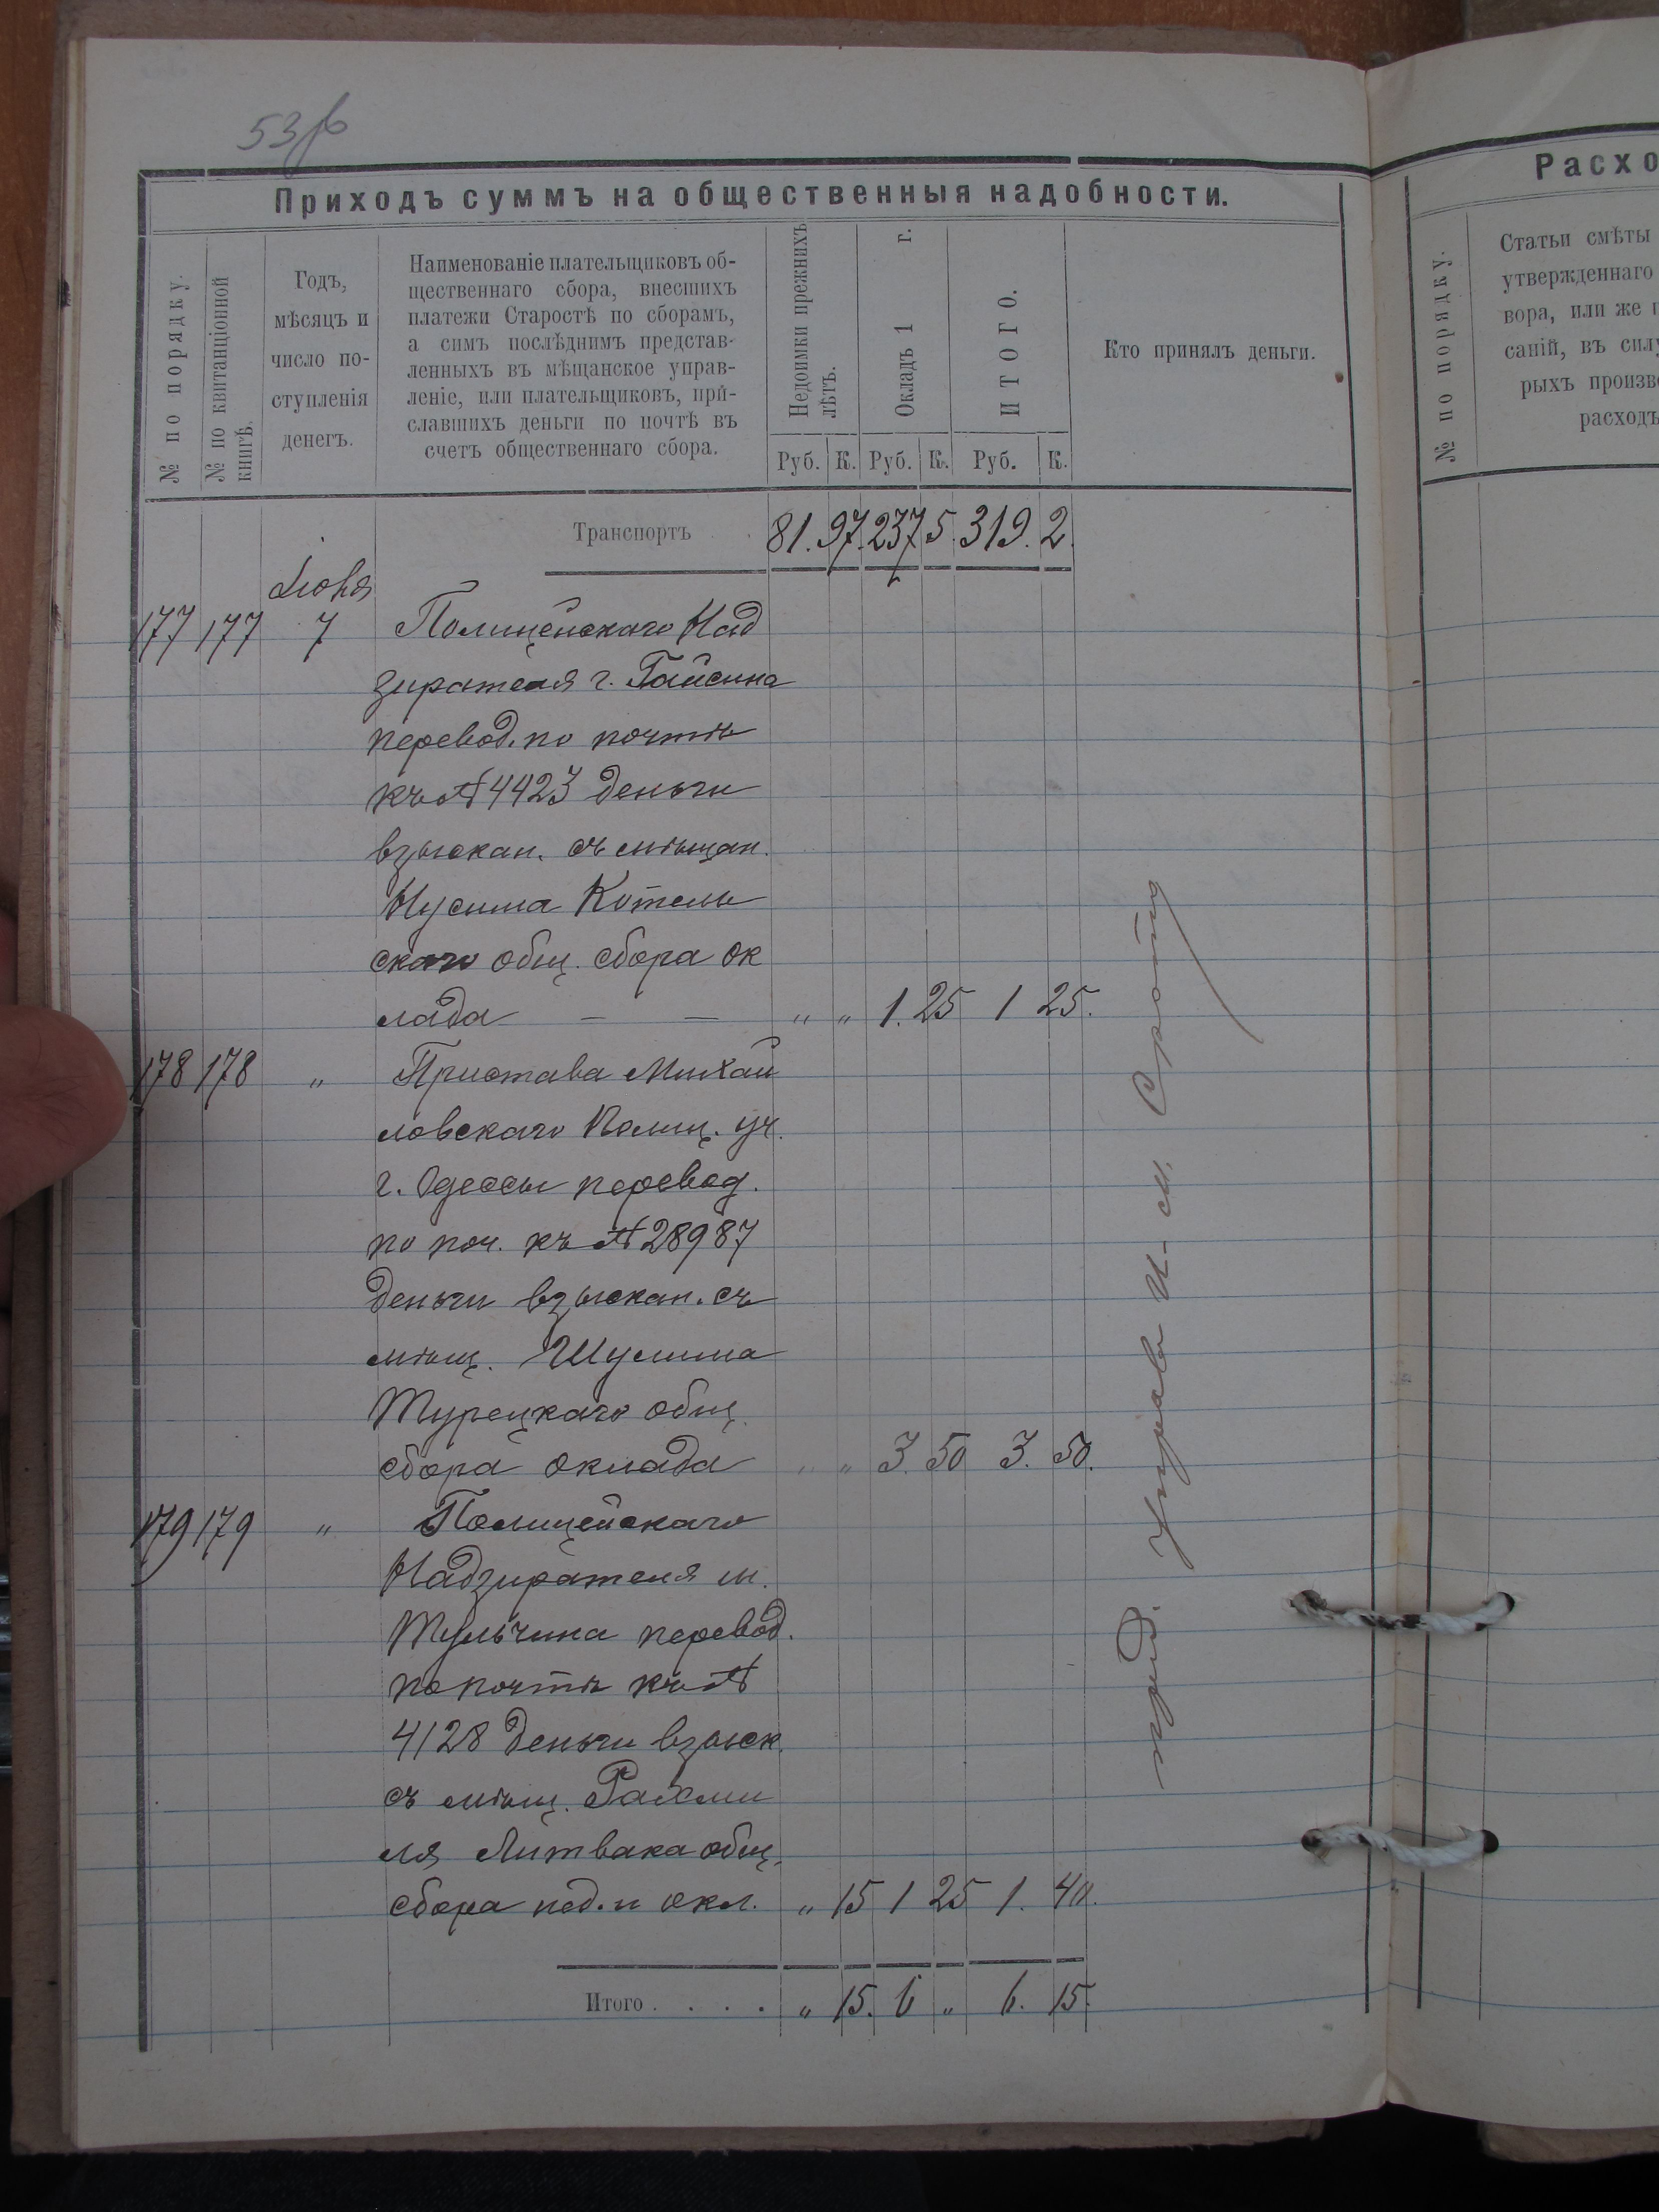 53
Приходъ суммъ на общественныя надобности.
№ по порядку.
№ по квитанціонной
книгѣ.
Годъ,
мѣсяцъ и
число по-
ступленія
денегъ.
Наименованіе плательщиковъ об-
щественнаго сбора, внесшихъ
платежи Старостѣ по сборамъ,
а симъ послѣднимъ представ-
ленныхъ въ мѣщанское управ-
леніе, или плательщиковъ, при-
славшихъ деньги по почтѣ въ
счетъ общественнаго сбора.
Недоимки прежнихъ
лѣтъ.
Окладъ 1 г.
ИТОГО.
Кто принялъ деньги.
Руб. К. Руб. К. Руб. К.
Транспортъ 81. 97. 237 5. 319. 2.
Іюня
177 177 7 Полицейскаго Над
зирателя г. Гайсина
перевод. по почтѣ
къ № 4423 деньги
взыскан. съ мѣщан.
Нусима Котель
скаго общ. сбора ок
лада — — „ „ 1. 25 1 25.
178 178 „ Пристава Михай
ловскаго Полиц. уч.
г. Одессы перевод.
по поч. къ № 28987
деньги взыскан. съ
мѣщ. Шулима
Турецкаго общ.
сбора оклада „ „ 3. 50 3. 50.
179 179 „ Полицейскаго
Надзирателя м.
Тульчина перевод.
по почтѣ къ №
4128 деньги взыск.
съ мѣщ. Рахми
ля Литвака общ.
сбора нед. и окл. „ 15 1 25 1. 40.
Итого . . . . „ 15. 6 „ 6. 15.
Расхо
№ по порядку.
Статьи смѣты
утвержденнаго
вора, или же
саній, въ силу
рыхъ произве
расходъ